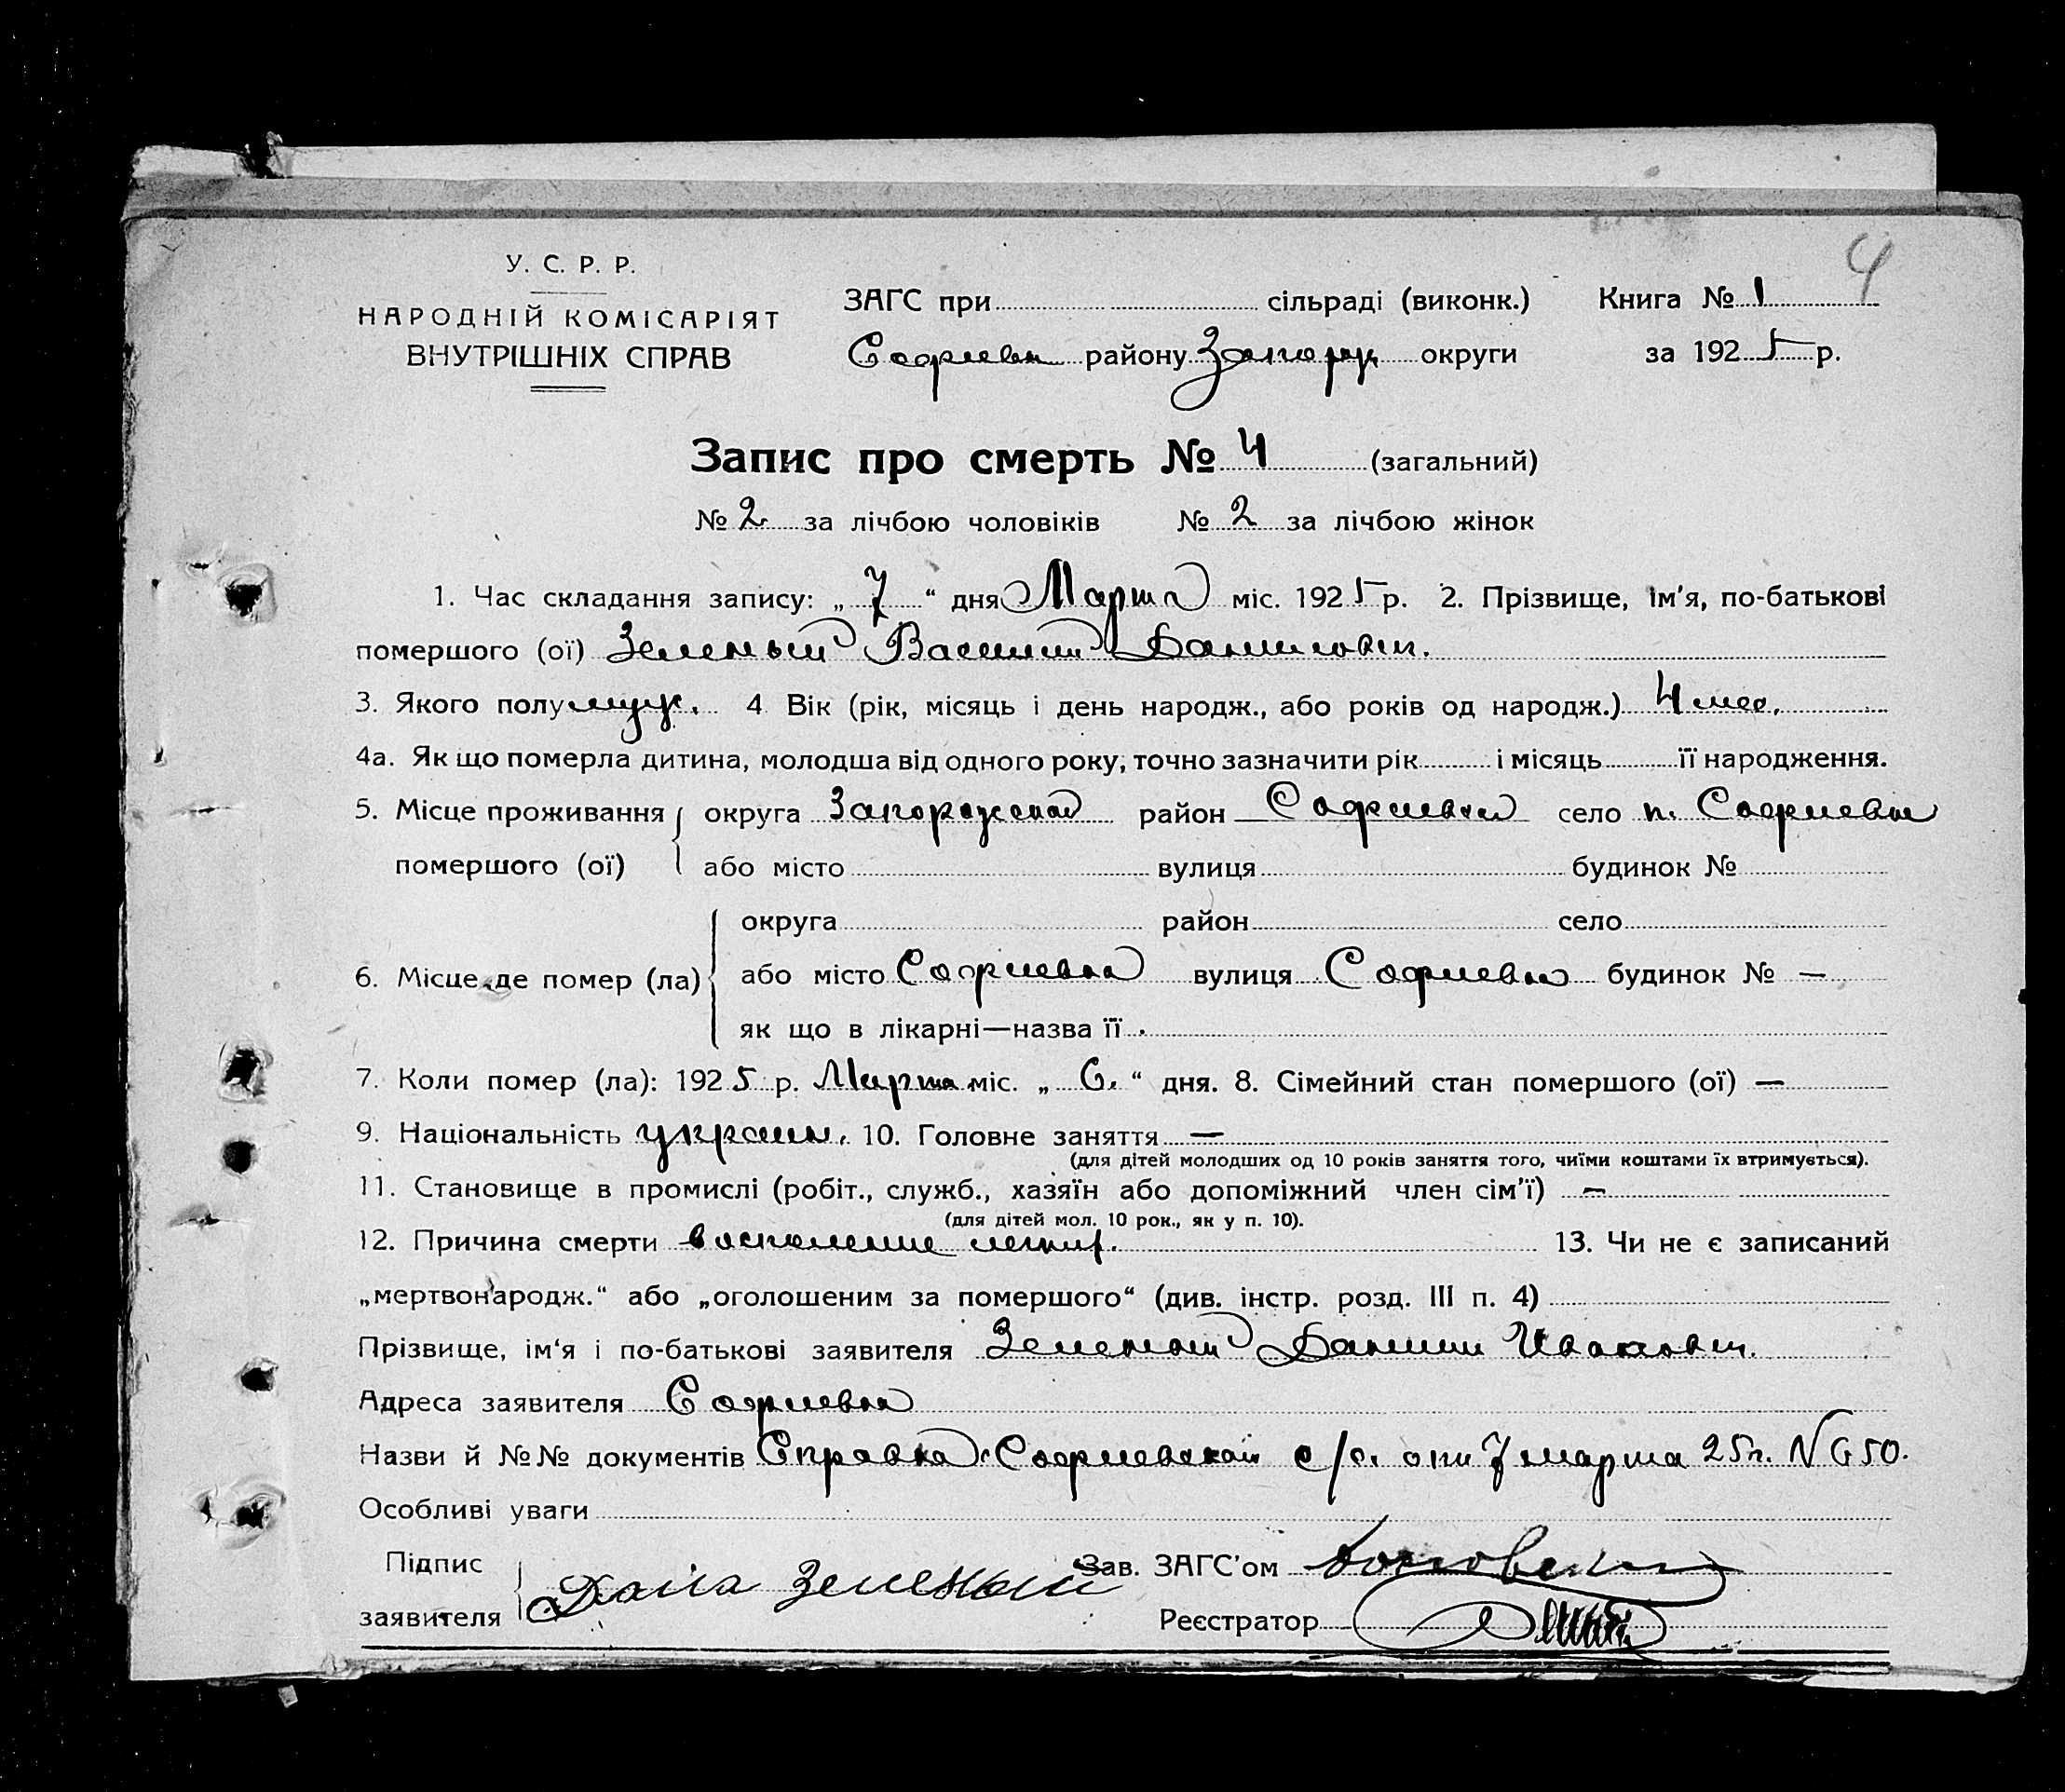 4
У. С. Р. Р.
НАРОДНІЙ КОМІСАРІЯТ
ВНУТРІШНІХ СПРАВ
ЗАГС при сільраді (виконк.)
Софиевк району Запорж округи
Книга № 1
за 1925 р.
Запис про смерть № 4 (загальний)
№ 2 за лічбою чоловіків № 2 за лічбою жінок
1. Час складання запису: „7“ дня Марта міс. 1925 р. 2. Прізвище, ім'я, по-батькові
помершого (ої) Зеленый Василий Данилович.
3. Якого полу муж. 4 Вік (рік, місяць і день народж., або років од народж.) 4 мес.
4а. Як що померла дитина, молодша від одного року, точно зазначити рік і місяць її народження.
5. Місце проживання округа Запорожской район Софиевка село п. Софиевка
помершого (ої) або місто вулиця будинок №
округа район село
6. Місце де помер (ла) або місто Софиевка вулиця Софиевка будинок № —
як що в лікарні—назва її
7. Коли помер (ла): 1925 р. Марта міс. „6.“ дня. 8. Сімейний стан помершого (ої) —
9. Національність украин. 10. Головне заняття —
(для дітей молодших од 10 років заняття того, чиїми коштами їх втримується).
11. Становище в промислі (робіт., служб., хазяїн або допоміжний член сім'ї) —
(для дітей мол. 10 рок., як у п. 10).
12. Причина смерти воспаление легких. 13. Чи не є записаний
„мертвонародж.“ або „оголошеним за помершого“ (див. інстр. розд. III п. 4)
Прізвище, ім'я і по-батькові заявителя Зеленый Данил Иванович.
Адреса заявителя Софиевка
Назви й №№ документів Справка Софиевской с/с. от 7 марта 25 г. N 650.
Особливі уваги
Підпис
заявителя Зеленый
Зав. ЗАГС'ом
Реєстратор